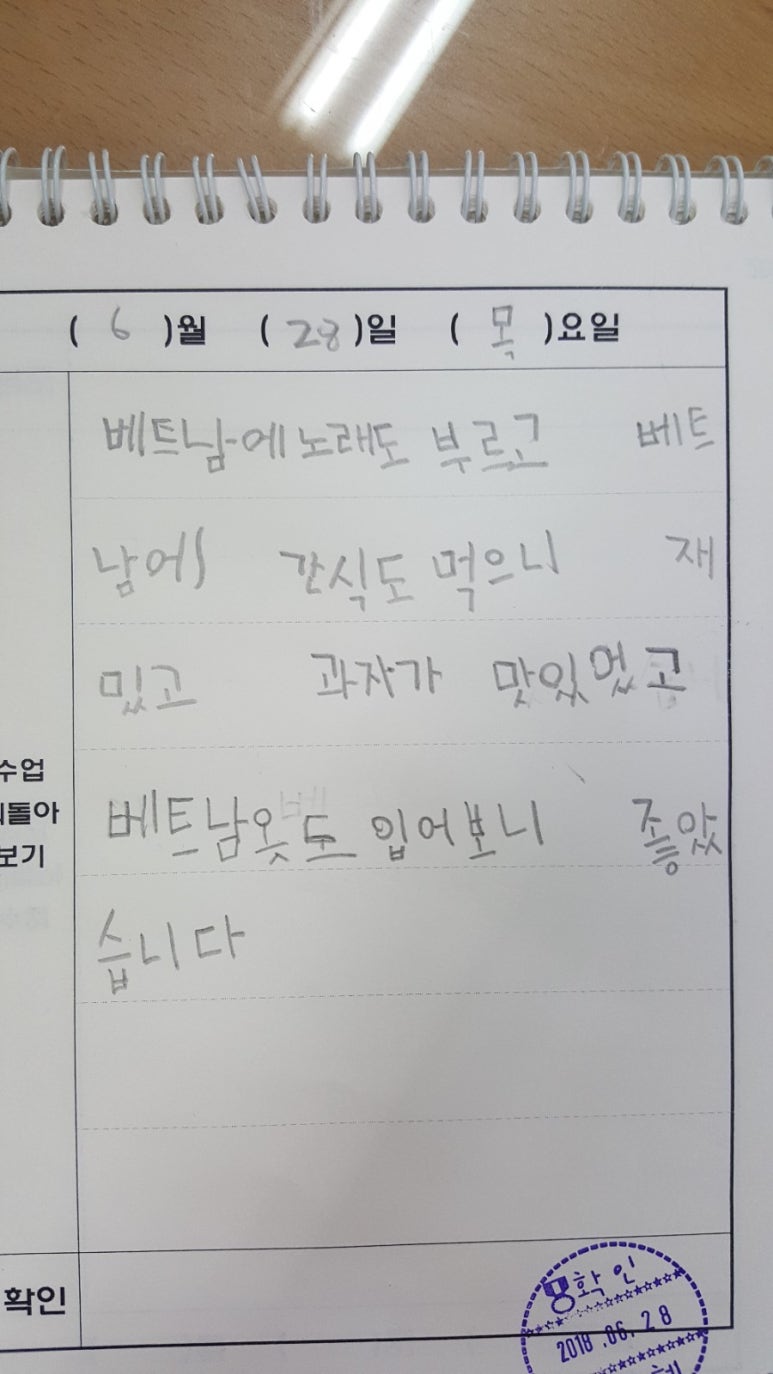 ( 6 )월 ( 28 )일 ( 목 )요일
베트남에 노래도 부르고 베트
남에 간식도 먹으니 재
밌고 과자가 맛있었고
베트남옷도 입어보니 좋았
습니다
수업
되돌아
보기
확인
확 인
2018.06.28